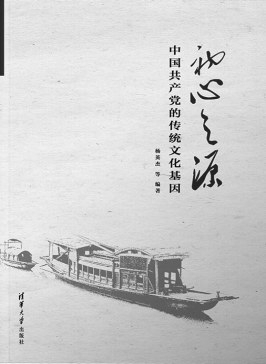 初心之源
中国共产党的传统文化基因
杨英杰 等 编著
清华大学出版社